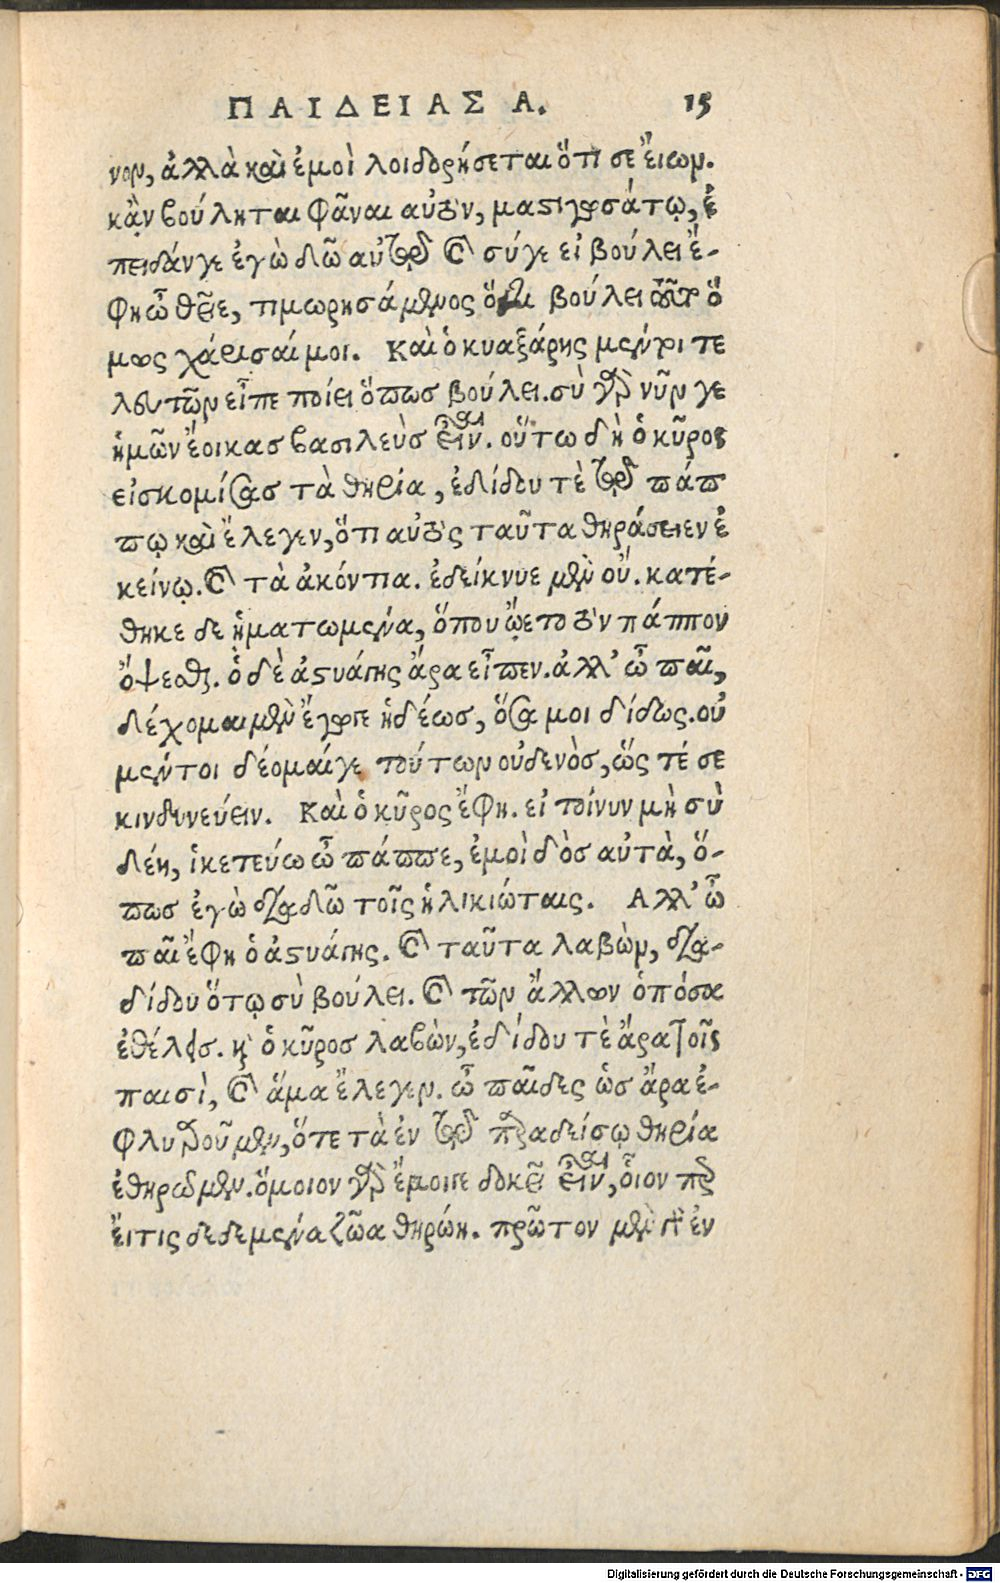 ΠΑΙΔΕΙΑΣ Α. 15
νον, ἀλλὰ καὶ ἐμοὶ λοιδορήσεται ὅτι σε ἔιων.
κᾂν βούληται φᾶναι αὐτὸν, μαστιγωσάτω, ἐ
πειδάνγε ἐγὼ δῶ αὐτῷ καὶ σύγε εἰ βούλει ἔ-
φη ὦ θεῖε, τιμωρησάμενος ὅ,τι βούλει τοῦτο ὅ
μως χάρισαί μοι. Καὶ ὁ κυαξάρης μέντοι τε
λευτῶν εἶπε ποίει ὅπως βούλει. σὺ γὰρ νῦν γε
ἡμῶν ἔοικας βασιλεὺς εἶναι. οὕτω δὴ ὁ κῦρος
εἰσκομίσας τὰ θηρία, ἐδίδου τὲ τῷ πάπ
πῳ καὶ ἔλεγεν, ὅτι αὐτὸς ταῦτα θηράσειεν ἐ
κείνῳ. καὶ τὰ ἀκόντια. ἐδείκνυε μὲν οὔ. κατέ-
θηκε δε ἡματωμένα, ὅπου ᾤετο τὸν πάππον
ὄψεσθαι. ὁ δὲ ἀστυάγης ἄρα εἶπεν. ἀλλ' ὦ παῖ,
δέχομαι μὲν ἔγωγε ἡδέως, ὅσα μοι δίδως. οὐ
μέντοι δέομαίγε τούτων οὐδενὸς, ὥς τέ σε
κινδυνεύειν. Καὶ ὁ κῦρος ἔφη. εἰ τοίνυν μὴ σὺ
δέη, ἱκετεύω ὦ πάππε, ἐμοὶ δὸς αὐτὰ, ὅ-
πως ἐγὼ διαδῶ τοῖς ἡλικιώταις. Αλλ' ὦ
παῖ ἔφη ὁ ἀστυάγης. καὶ ταῦτα λαβὼν, δια-
δίδου ὅτῳ σὺ βούλει. καὶ τῶν ἄλλων ὁπόσα
ἐθέλεις. καὶ ὁ κῦρος λαβὼν, ἐδίδου τὲ ἄρα τοῖς
παισὶ, καὶ ἅμα ἔλεγεν. ὦ παῖδες ὡς ἄρα ἐ-
φλυαροῦμεν, ὅτε τὰ ἐν τῷ παραδείσῳ θηρία
ἐθηρῶμεν. ὅμοιον γὰρ ἔμοιγε δοκεῖ εἶναι, οἷον περ
ἔιτις δεδεμένα ζῶα θηρῴη. πρῶτον μὲν γὰρ ἐν